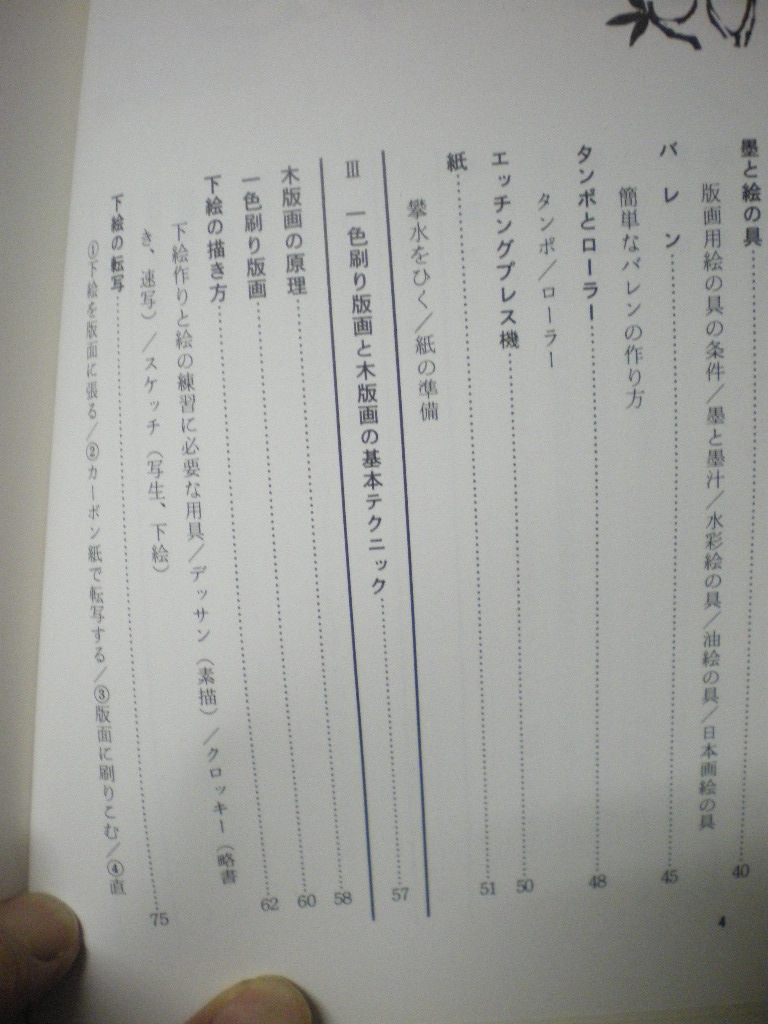 墨と絵の具……40
版画用絵の具の条件／墨と墨汁／水彩絵の具／油絵の具／日本画絵の具
バレン……45
簡単なバレンの作り方
タンポとローラー……48
タンポ／ローラー
エッチングプレス機……50
紙……51
礬水をひく／紙の準備
Ⅲ 一色刷り版画と木版画の基本テクニック……57
木版画の原理……58
一色刷り版画……60
下絵の描き方……62
下絵作りと絵の練習に必要な用具／デッサン（素描）／クロッキー（略書
き、速写）／スケッチ（写生、下絵）
下絵の転写……75
①下絵を版面に張る／②カーボン紙で転写する／③版面に刷りこむ／④直
4